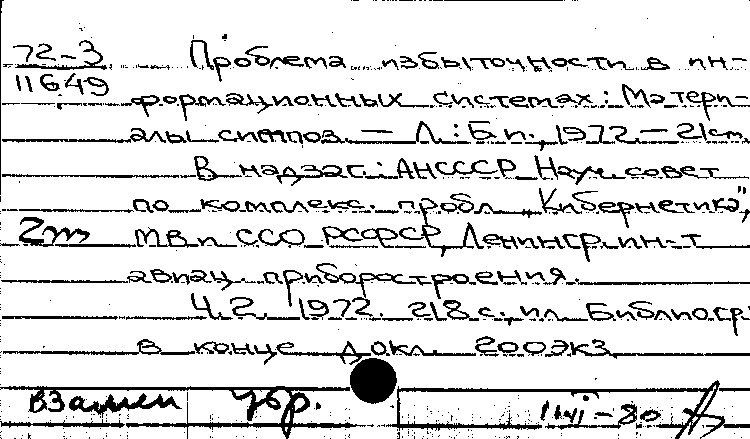 72-3
11649
Проблема избыточности в ин-
формационных системах: Матери-
алы симпоз. — Л.: Б.и., 1972. — 21 cm.
В надзаг.: АН СССР Науч. совет
по комплекс. пробл. „Кибернетика",
2m МВ и ССО РСФСР, Ленингр. ин-т
авиац. приборостроения.
Ч. 2. 1972. 218 с., ил. Библиогр.
в конце докл. 200 экз.
взамен убр. -80